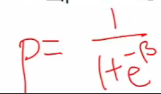 p = 1 / (1+e^-β)